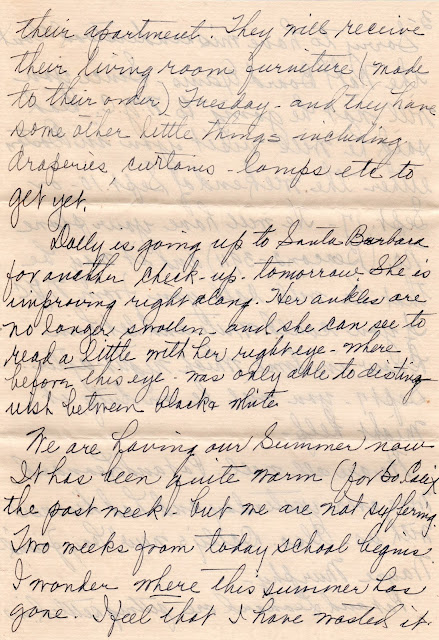 their apartment. They will receive
their living room furniture (made
to their order) Tuesday - and they have
some other little things including
draperies, curtains - lamps etc to
get yet.
Dolly is going up to Santa Barbara
for another check-up - tomorrow. She is
improving right along. Her ankles are
no longer swollen - and she can see to
read a little with her right eye - where
before this eye was only able to disting
uish between black & white.
We are having our Summer now
It has been quite warm (for So. Calif)
the past week - but we are not suffering
Two weeks from today school begins.
I wonder where this summer has
gone. I feel that I have wasted it.